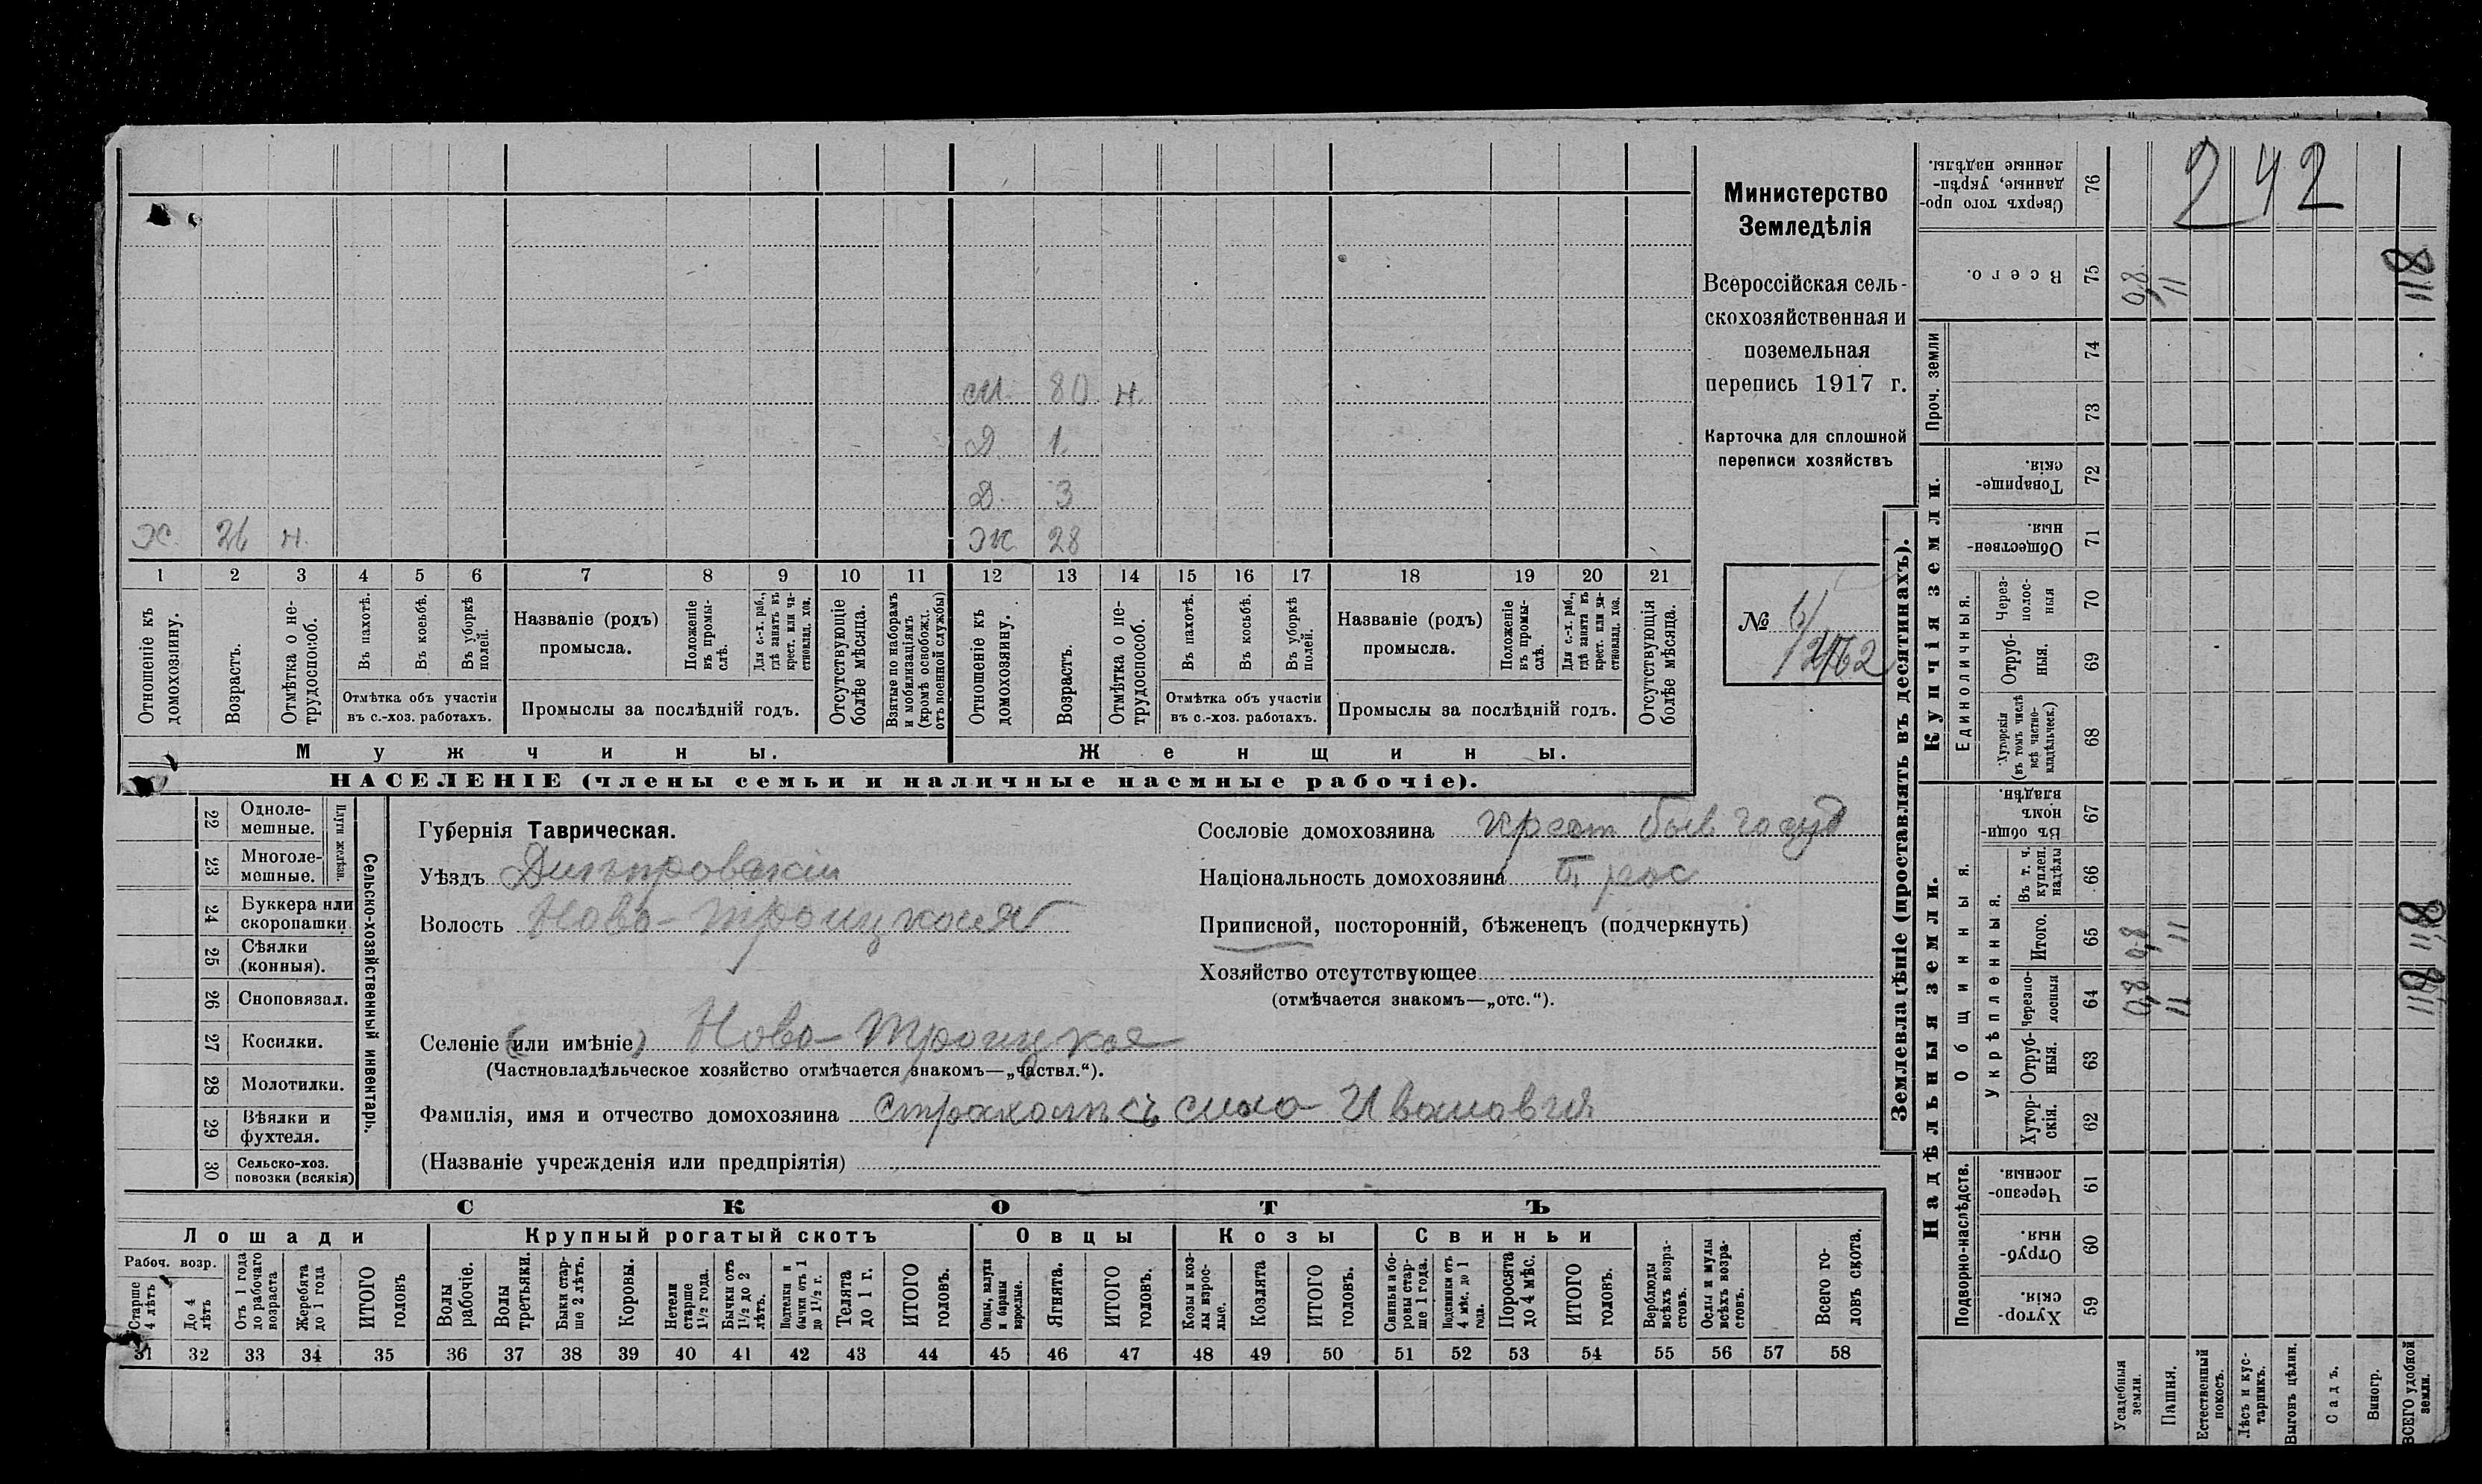 242
Министерство
Земледѣлія
Всероссійская сель-
скохозяйственная и
поземельная
перепись 1917 г.
Карточка для сплошной
переписи хозяйствъ
№
см. 80 н.
Д. 1.
Д. 3
Х. 26 н.
Ж 28
1 2 3 4 5 6 7 8 9 10 11 12 13 14 15 16 17 18 19 20 21
Отношеніе къ
домохозяину.
Возрастъ.
Отмѣтка о не-
трудоспособ.
Въ пахотѣ.
Въ косьбѣ.
Въ уборкѣ
полей.
Отмѣтка объ участіи
въ с.-хоз. работахъ.
Названіе (родъ)
промысла.
Положеніе
въ промы-
слѣ.
Для с.-х. раб.,
гдѣ занятъ въ
крест. или ча-
стновлад. хоз.
Промыслы за послѣдній годъ.
Отсутствующіе
болѣе мѣсяца.
Взятые по наборамъ
и мобилизаціямъ
(кромѣ освобожд.
отъ военной службы)
Отношеніе къ
домохозяину.
Возрастъ.
Отмѣтка о не-
трудоспособ.
Въ пахотѣ.
Въ косьбѣ.
Въ уборкѣ
полей.
Отмѣтка объ участіи
въ с.-хоз. работахъ.
Названіе (родъ)
промысла.
Положеніе
въ промы-
слѣ.
Для с.-х. раб.,
гдѣ занята въ
крест. или ча-
стновлад. хоз.
Промыслы за послѣдній годъ.
Отсутствующія
болѣе мѣсяца.
Мужчины.
Женщины.
НАСЕЛЕНІЕ (члены семьи и наличные наемные рабочіе).
Сельско-хозяйственный инвентарь.
Плуги желѣзн.
22 Одноле-
мешные.
23 Многоле-
мешные.
24 Буккера или
скоропашки
25 Сѣялки
(конныя).
26 Сноповязал.
27 Косилки.
28 Молотилки.
29 Вѣялки и
фухтеля.
30 Сельско-хоз.
повозки (всякія)
Губернія Таврическая.
Уѣздъ Днѣпровскій
Волость Ново-Троицкая
Селеніе (или имѣніе) Ново-Троицкое
(Частновладѣльческое хозяйство отмѣчается знакомъ—„частвл.“).
Фамилія, имя и отчество домохозяина Ивановна
(Названіе учрежденія или предпріятія)
Сословіе домохозяина крест быв госуд
Національность домохозяина
Приписной, посторонній, бѣженецъ (подчеркнуть)
Хозяйство отсутствующее
(отмѣчается знакомъ—„отс.“).
СКОТЪ
Лошади
Крупный рогатый скотъ
Овцы
Козы
Свиньи
Рабоч. возр.
Старше
4 лѣтъ
До 4
лѣтъ
Отъ 1 года
до рабочаго
возраста
Жеребята
до 1 года
ИТОГО
головъ
Волы
рабочіе.
Волы
третьяки.
Быки стар-
ше 2 лѣтъ.
Коровы.
Нетели
старше
1½ года.
Бычки отъ
1½ до 2
лѣтъ.
Подтелки и
бычки отъ 1
до 1½ г.
Телята
до 1 г.
ИТОГО
головъ.
Овцы, валухи
и бараны
взрослые.
Ягнята.
ИТОГО
головъ.
Козы и коз-
лы взрос-
лые.
Козлята
ИТОГО
головъ.
Свиньи и бо-
ровы стар-
ше 1 года.
Подсвинки отъ
4 мѣс. до 1
года.
Поросята
до 4 мѣс.
ИТОГО
головъ.
Верблюды
всѣхъ возра-
стовъ.
Ослы и мулы
всѣхъ возра-
стовъ.
Всего го-
ловъ скота.
31 32 33 34 35 36 37 38 39 40 41 42 43 44 45 46 47 48 49 50 51 52 53 54 55 56 57 58
Землевладѣніе (проставлять въ десятинахъ).
Надѣльныя земли.
Купчія земли.
Проч. земли
Сверхъ того про-
данные, укрѣп-
ленные надѣлы.
76
Всего.
75
9,8
11
118
74
73
Товарище-
скія.
72
Обществен-
ныя.
71
Единоличныя.
Через-
полос-
ныя
70
Отруб-
ныя.
69
Хуторскія
(въ томъ числѣ
всѣ частно-
владѣльческ.)
68
Общинныя.
Въ общи-
номъ
владѣн.
67
Укрѣпленныя.
Въ т. ч.
куплен.
надѣлы
66
Итого.
65
9,8
11
11,8
Черезпо-
лосныя
64
9,8
11
11,8
Отруб-
ныя.
63
Хутор-
скія.
62
Подворно-наслѣдств.
Черезпо-
лосныя.
61
Отруб-
ныя.
60
Хутор-
скія.
59
Усадебныя
земли.
Пашня.
Естественный
покосъ.
Лѣсъ и кус-
тарникъ.
Выгонъ цѣлин.
Садъ.
Виногр.
ВСЕГО удобной
земли.